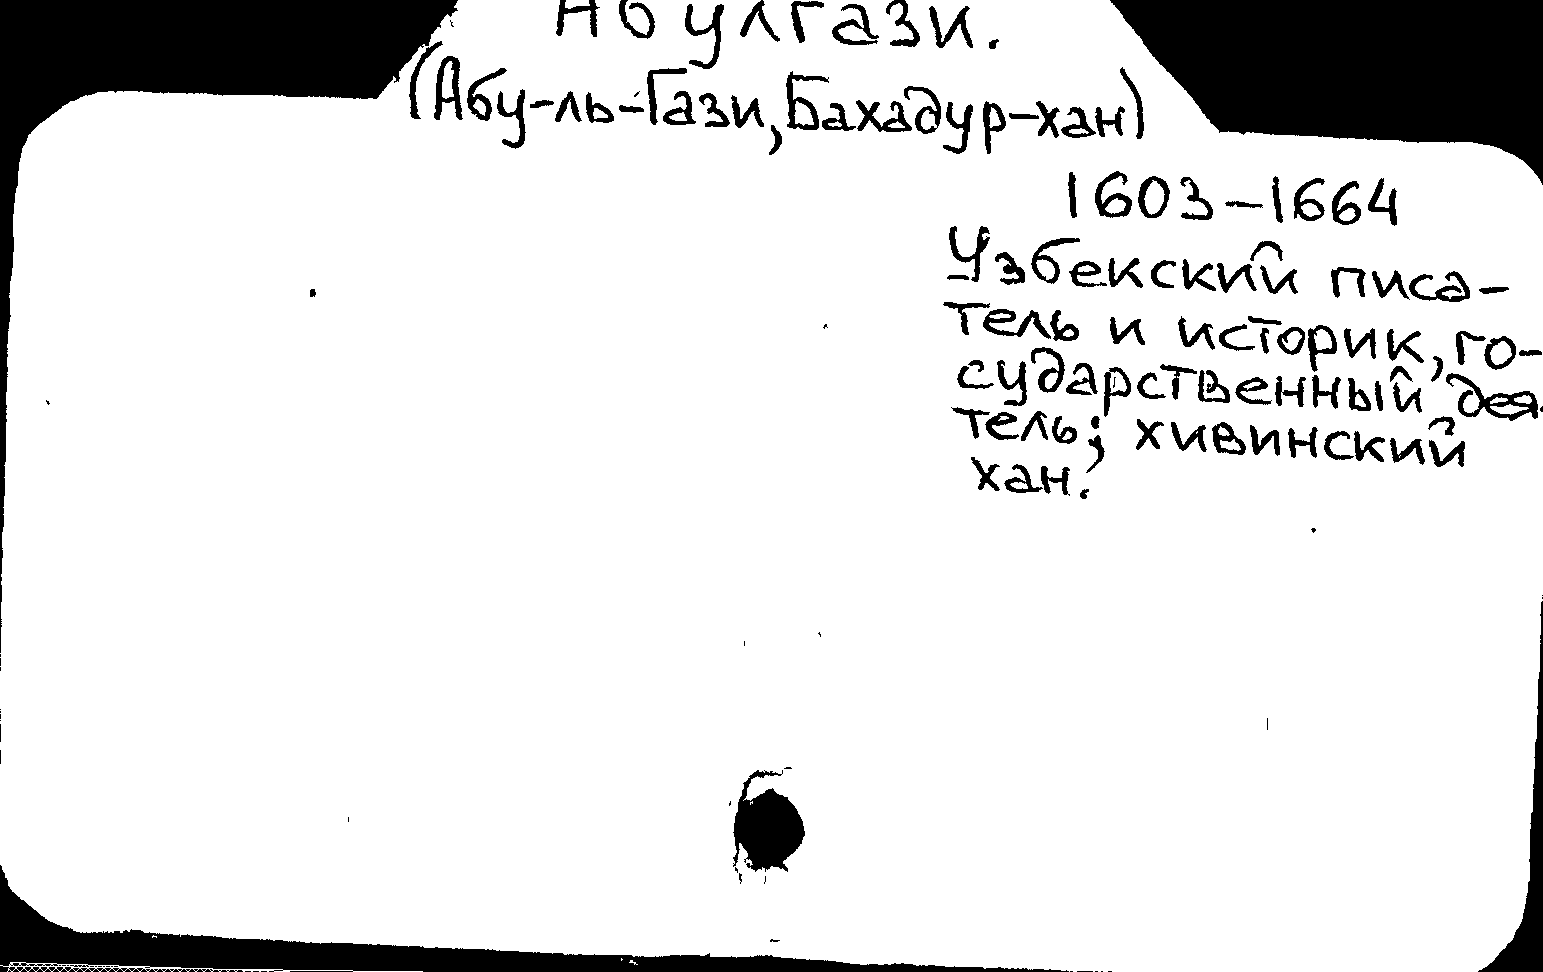 Абулгази.
(Абу-ль-Гази, Бахадур-хан)
1603-1664
Узбекский писа-
тель и историк, го-
сударственный дея-
тель; хивинский
хан.